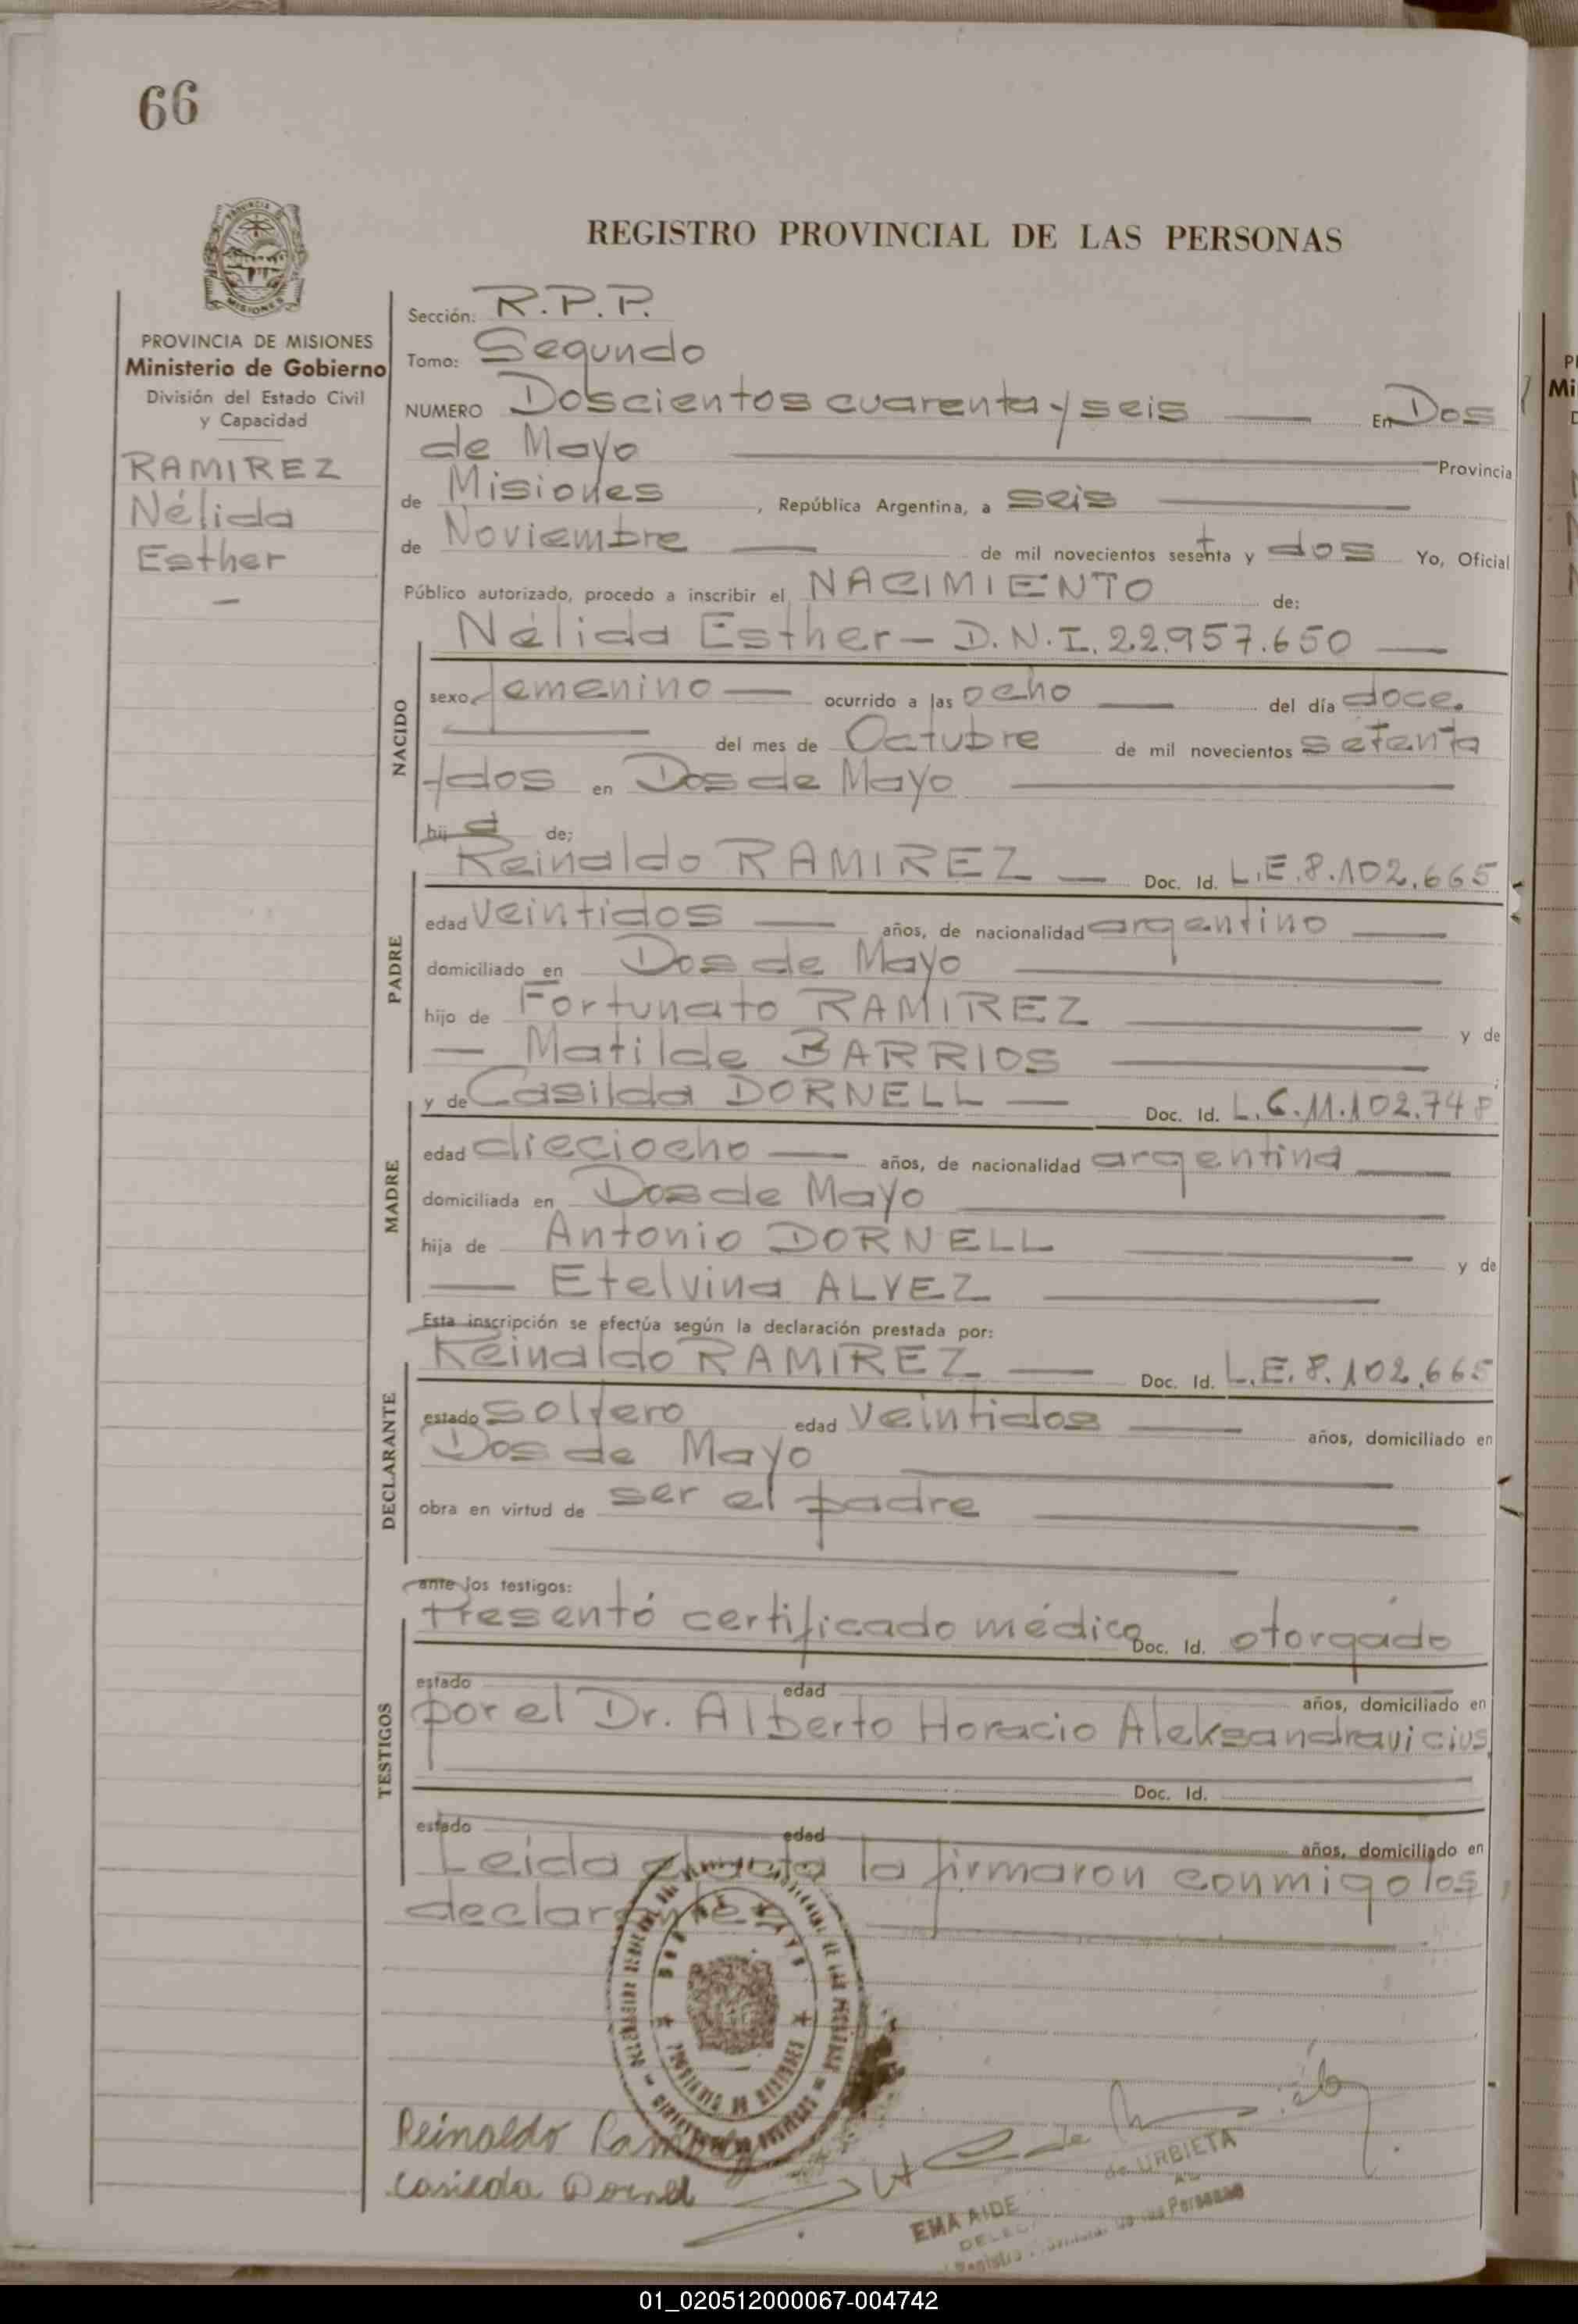 66
REGISTRO PROVINCIAL DE LAS PERSONAS
PROVINCIA DE MISIONES
Ministerio de Gobierno
División del Estado Civil
y Capacidad
RAMIREZ
Nélida
Esther
—
Sección: R.P.P.
Tomo: Segundo
NUMERO Doscientos cuarenta y seis — En Dos
de Mayo — Provincia
de Misiones, República Argentina, a seis —
de Noviembre — de mil novecientos setenta y dos Yo, Oficial
Público autorizado, procedo a inscribir el NACIMIENTO de:
NACIDO
Nélida Esther — D.N.I. 22.957.650 —
sexo femenino — ocurrido a las ocho — del día doce.
— del mes de Octubre de mil novecientos setenta
y dos en Dos de Mayo —
hij a de:
PADRE
Reinaldo RAMIREZ — Doc. Id. L.E. 8.102.665
edad veintidos — años, de nacionalidad argentino —
domiciliado en Dos de Mayo —
hijo de Fortunato RAMIREZ — y de
— Matilde BARRIOS —
MADRE
y de Casilda DORNELL — Doc. Id. L.C. 11.102.748
edad dieciocho — años, de nacionalidad argentina —
domiciliada en Dos de Mayo —
hija de Antonio DORNELL — y de
— Etelvina ALVEZ —
Esta inscripción se efectúa según la declaración prestada por:
DECLARANTE
Reinaldo RAMIREZ — Doc. Id. L.E. 8.102.665
estado soltero edad veintidos — años, domiciliado en
Dos de Mayo —
obra en virtud de ser el padre —
ante los testigos:
TESTIGOS
Presentó certificado médico Doc. Id. otorgado
estado edad años, domiciliado en
por el Dr. Alberto Horacio Aleksandravicius
Doc. Id.
estado edad años, domiciliado en
Leida el acta la firmaron conmigo los
declarantes —
Reinaldo Ramirez
Casilda Dornel
de URBIETA
EMA AIDE
de las Personas
01_020512000067-004742